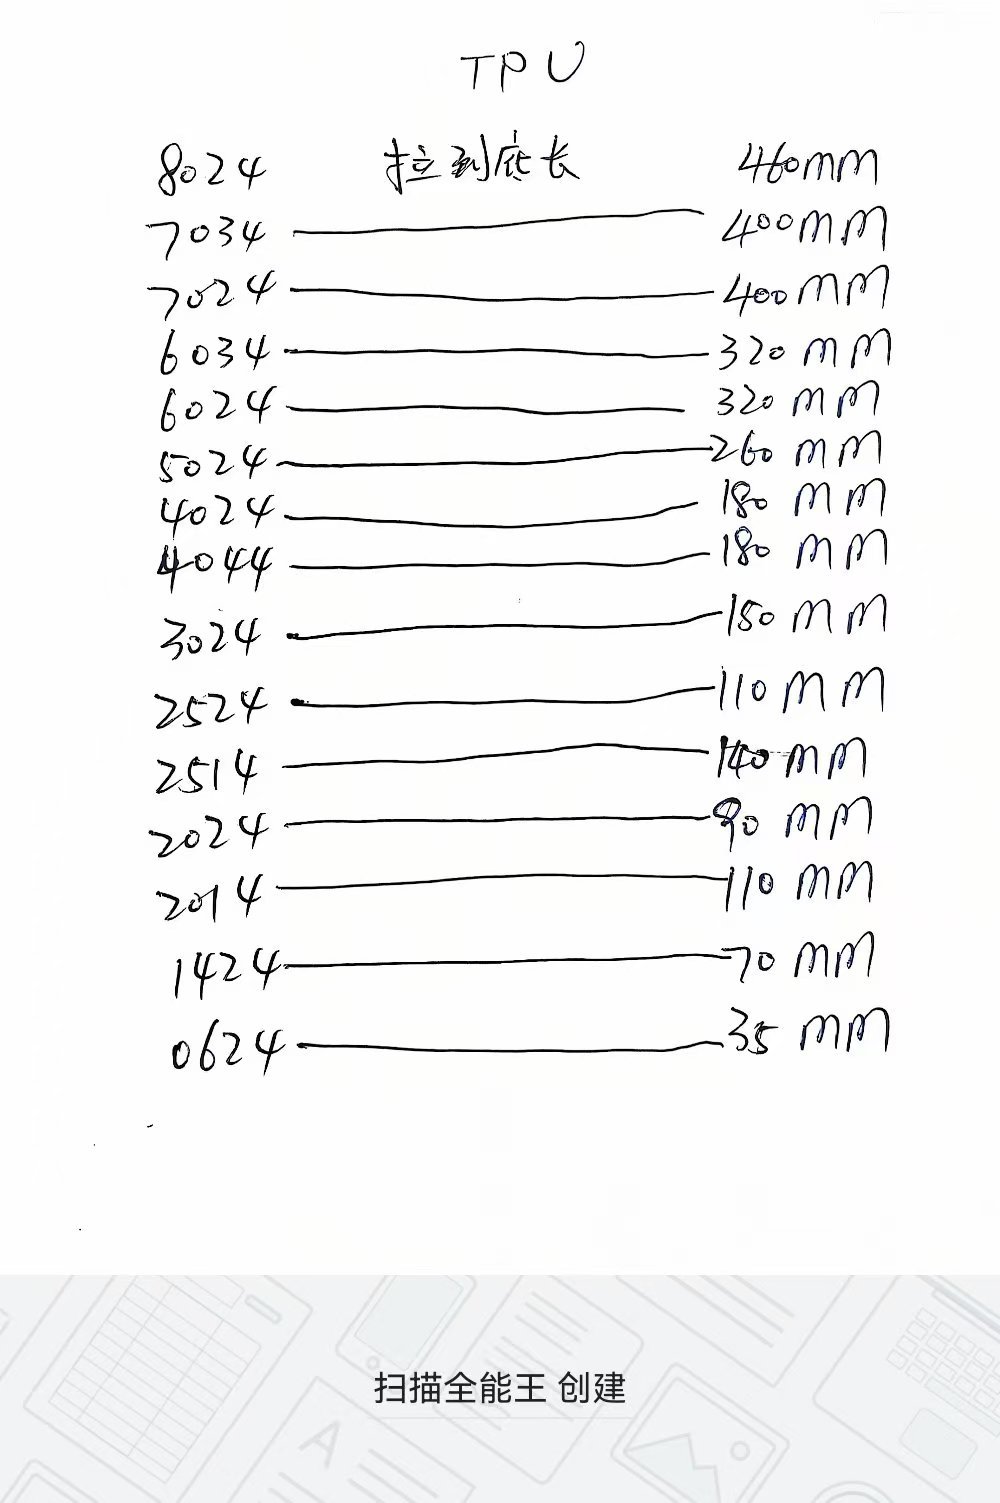 TPU
8024 拉到底长 460mm
7034 400mm
7024 400mm
6034 320mm
6024 320mm
5024 260mm
4024 180mm
4044 180mm
3024 150mm
2524 110mm
2514 140mm
2024 90mm
2014 110mm
1424 70mm
0624 35mm
扫描全能王 创建